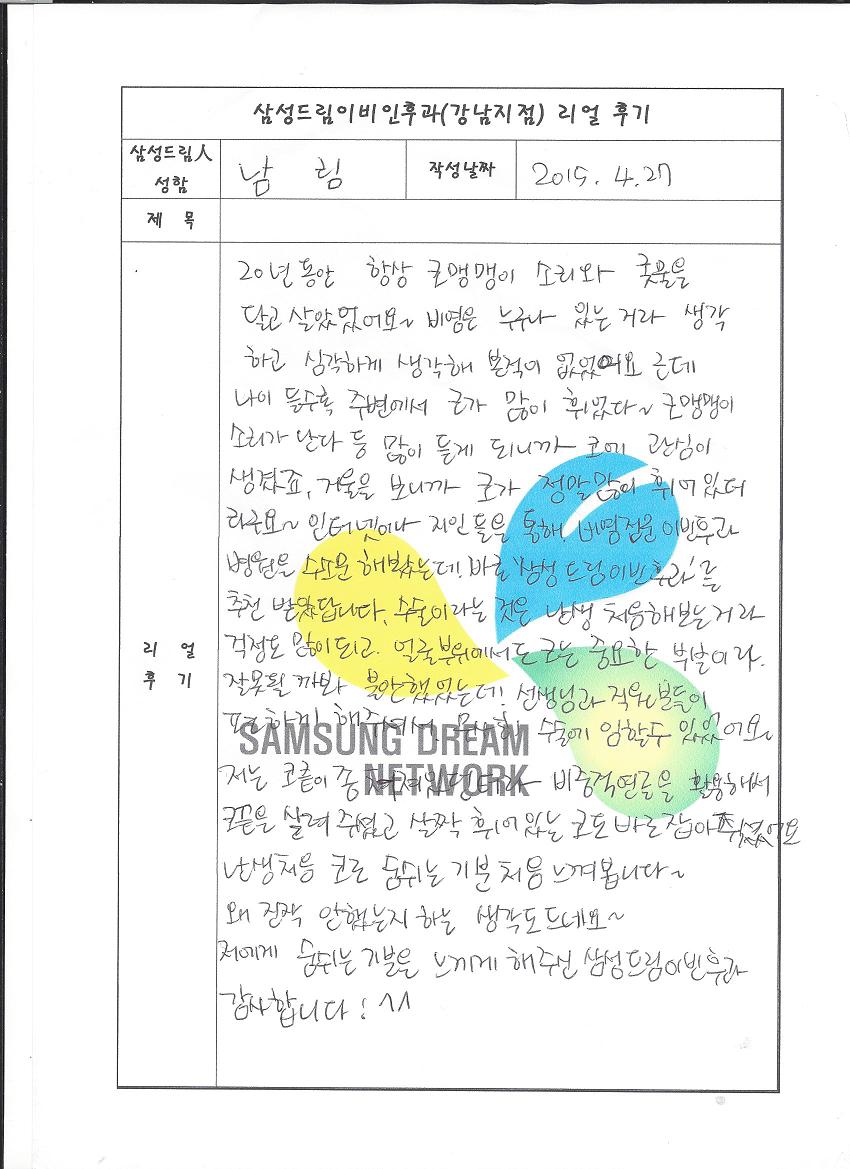 삼성드림이비인후과(강남지점) 리얼 후기
삼성드림人
성함
남 림
작성날짜
2015. 4.27
제 목
리 얼
후 기
20년 동안 항상 코맹맹이 소리와 콧물을
달고 살았었어요~ 비염은 누구나 있는 거라 생각
하고 심각하게 생각해 본적이 없었어요 근데
나이 들수록 주변에서 코가 많이 휘었다~ 코맹맹이
소리가 난다 등 많이 듣게 되니까 코에 관심이
생겼죠, 거울을 보니까 코가 정말 많이 휘어 있더
라구요~ 인터넷이나 지인들을 통해, 비염전문 이빈후과
병원을 수소문 해봤는데! 바로 '삼성드림이빈후과'를
추천 받았답니다. 수술이라는 것은 난생 처음해보는거라
걱정도 많이되고. 얼굴부위에서도 코는 중요한 부분이라.
잘못될까봐 불안했었는데! 선생님과 직원분들이
해주셔서 수술에 임할수 있었어요~
SAMSUNG DREAM
NETWORK
저는 코끝이 좀 쳐져있던터라 비중격연골을 활용해서
코끝을 살려주셨고 살짝 휘어있는 코도 바로잡아주셨어요
난생처음 코로 숨쉬는 기분 처음 느껴봅니다~
왜 진작 안했는지 하는 생각도드네요~
저에게 숨쉬는 기분을 느끼게 해주신 삼성드림이빈후과
감사합니다! ^^